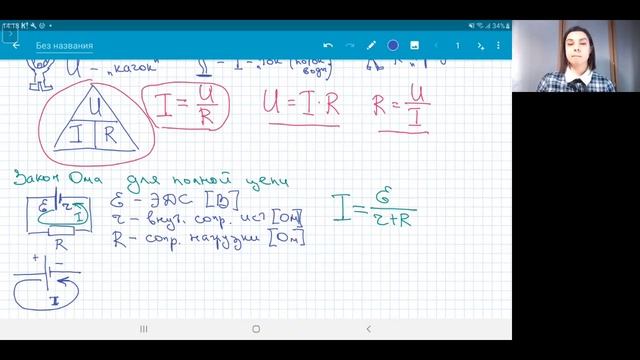 14:18 К!
34%
Без названия
1
U - "каток" I - "ток (поток воды)
U
I R
I = U/R U = I·R R = U/I
Закон Ома для полной цепи
ℰ r I R
ℰ - ЭДС [В]
r - внут. сопр. ист [Ом]
R - сопр. нагрузки [Ом]
I = ℰ/(r+R)
+ -
I